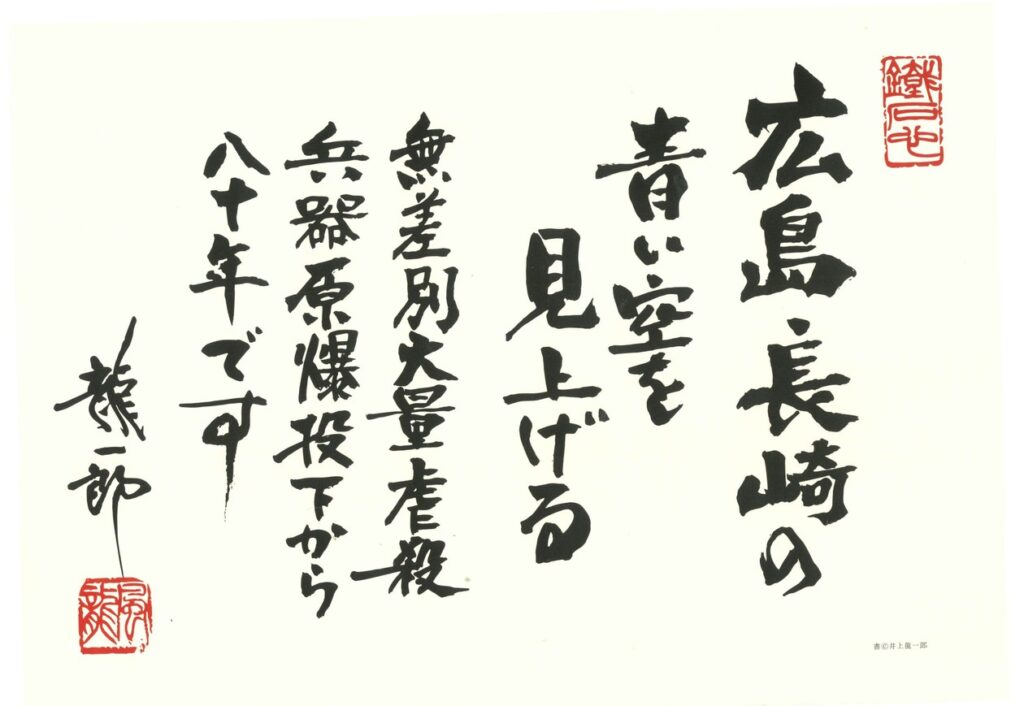 鐵石心
広島長崎の
青い空を
見上げる
無差別大量虐殺
兵器原爆投下から
八十年です
龍一郎
風龍
書©井上龍一郎